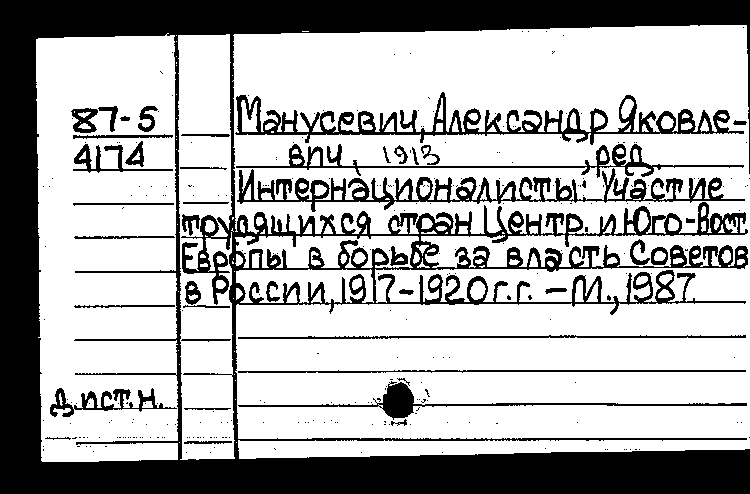 87-5 Манусевич, Александр Яковле-
4174 вич, 1913 , ред.
Интернационалисты: Участие
трудящихся стран Центр. и Юго-Вост.
Европы в борьбе за власть Советов
в России, 1917-1920 г.г. – М., 1987.
д.ист.н.